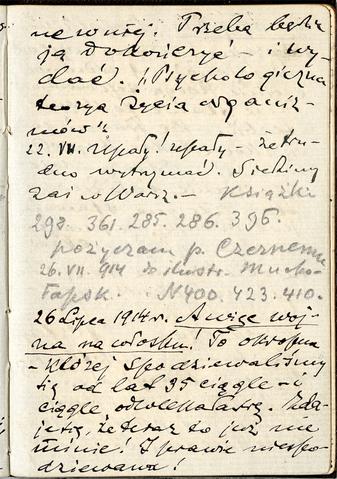 ne wniej. Trzeba będzie
ją dokończyć – i wy-
dać. "Psychologiczna
teorya życia organiz-
mów"!
22. VII. Upały! upały – że tru-
dno wytrzymać. Siedzimy
zaś w Warsz. – Książki
298. 361. 285. 286. 396.
pożyczam p. Czernemu
26. VII. 914 do ilustr. Mucho-
łapsk. N400. 423. 410.
26 Lipca 1914 r. A więc woj-
na na włosku! Ta okropna
– której spodziewaliśmy
się od lat 35 ciągle – i
ciągle odwlekała się. Zda-
je się, że teraz to już nie
minie! I prawie niespo-
dziewana!